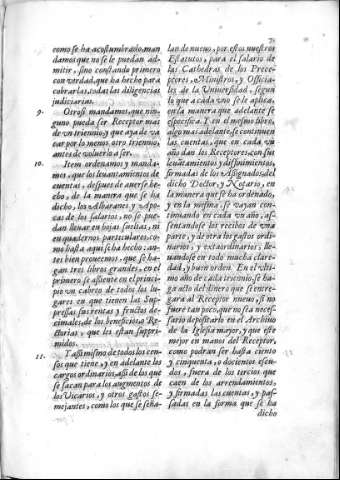 como se ha acostumbrado, man
damos que no se le puedan ad-
mitir, sino constando primero
con verdad, que ha hecho para
cobrarlas, todas las diligencias
judiciarias.
9. Otrosi mandamos, que nin-
guno pueda ser Receptor mas
de un triennio, y que aya de va
car por lo menos otro triennio,
antes de volver a ser.
10. Item ordenamos y manda-
mos, que los levantamientos de
cuentas, despues de averse he-
cho, de la manera que se ha
dicho, los Albaranes y Apo-
cas de los salarios, no se pue-
dan llevar en hojas sueltas, ni
en quadernos particulares, co-
mo hasta aqui se ha hecho; an-
tes bien proveemos, que se ha-
gan tres libros grandes, en el
primero se assiente en el princi-
pio un cabreo de todos los lu-
gares en que tienen las Sup-
pressas sus rentas y fructos de-
cimales, de los beneficios ò Re-
ctorias, que les estan suppri-
midos.
11. Y assimismo de todos los cen-
sos que tiene, y en adelante los
cargos ordinarios, assi de los que
se sacan para los augmentos de
los Vicarios, y otros gastos se-
mejantes, como los que se seña-
lan de nuevo, por estos nuestros
Estatutos, para el salario de
las Cathedras de los Prece-
ptores, Ministros, y Officia-
les de la Universidad, segun
lo que a cada uno se le aplica,
en la manera que adelante se
especifica. Y en el mismo libro,
algo mas adelante se continuen
las cuentas, que en cada un
año dan los Receptores, con sus
levantamientos y difinimientos,
firmadas de los Assignados, del
dicho Doctor, y Notario, en
la manera que se ha ordenado,
y en la misma, se vayan con-
tinuando en cada un año, as-
sentandose los recibos de una
parte, y de otra los gastos ordi-
narios, y extraordinarios; lle-
vandose en todo mucha clare-
dad, y buen orden. En el ulti-
mo año de cada triennio, se ha-
ga acto del dinero que se entre-
gara al Receptor nuevo, si no
fuere tan poco, que no sea neces-
sario depositarlo en el Archivo
de la Iglesia mayor, y que esté
mejor en manos del Receptor,
como podran ser hasta ciento
y cinquenta, y docientos escu-
dos, fuera de los tercios que
caen de los arrendamientos,
y firmadas las cuentas, y pas-
sadas en la forma que se ha
dicho